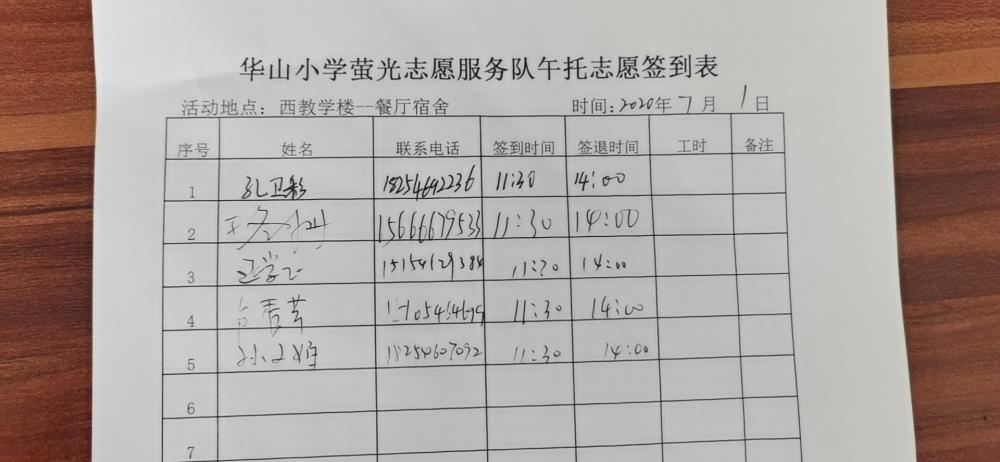 华山小学萤光志愿服务队午托志愿签到表
活动地点: 西教学楼--餐厅宿舍 时间:2020年7月1日
序号 姓名 联系电话 签到时间 签退时间 工时 备注
1 孔卫彩 18254692236 11:30 14:00
2 15666679533 11:30 14:00
3 15154129384 11:30 14:00
4 11:30 14:00
5 孙 18254607092 11:30 14:00
6
7